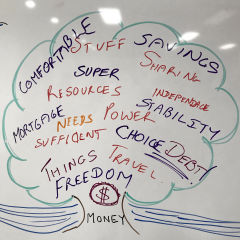 COMFORTABLE
STUFF
SAVINGS
SHARING
SUPER
RESOURCES
INDEPENDENCE
MORTGAGE
NEEDS
POWER
STABILITY
SUFFICIENT
CHOICE
DEBT!
THINGS
TRAVEL
FREEDOM
$
MONEY